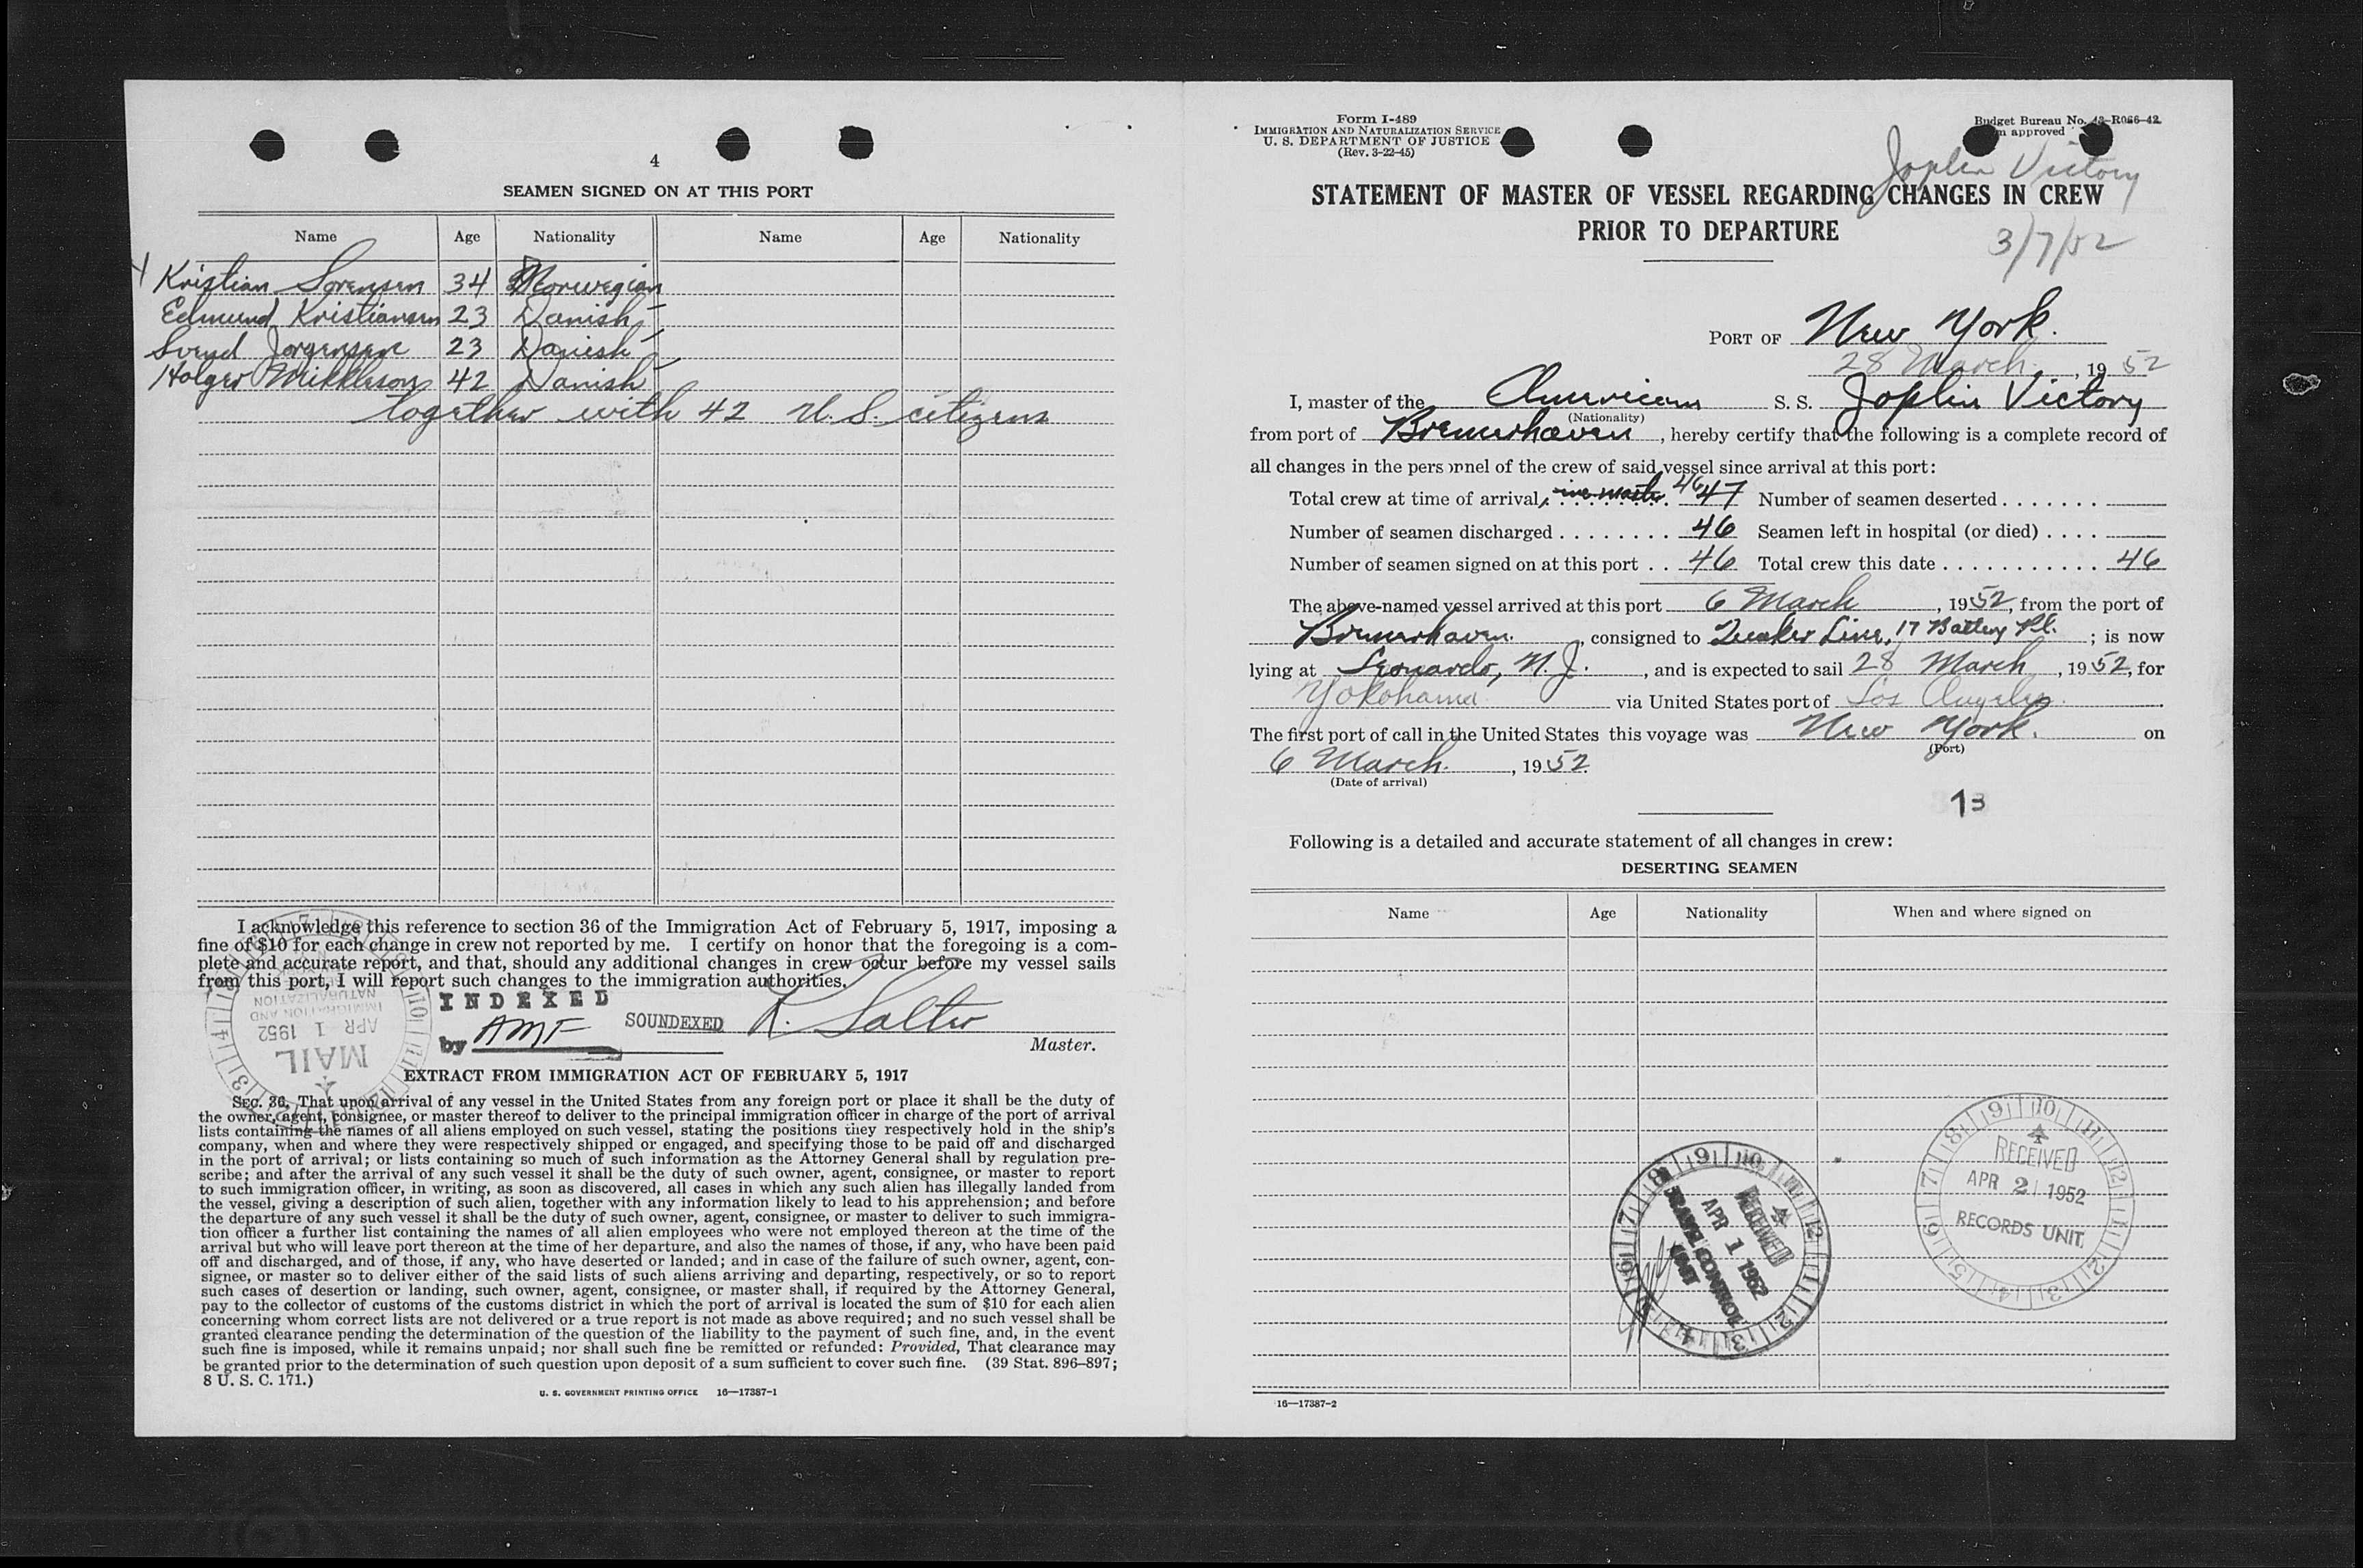 4
SEAMEN SIGNED ON AT THIS PORT
Name Age Nationality Name Age Nationality
Kristian Sorensen 34 Norwegian
Edmund Kristiansen 23 Danish
Svend Jorgensen 23 Danish
Holger Mikkleson 42 Danish
together with 42 U.S. citizens
I acknowledge this reference to section 36 of the Immigration Act of February 5, 1917, imposing a
fine of $10 for each change in crew not reported by me. I certify on honor that the foregoing is a com-
plete and accurate report, and that, should any additional changes in crew occur before my vessel sails
from this port, I will report such changes to the immigration authorities.
INDEXED
by AMF
SOUNDEXED
K. Salter
Master.
IMMIGRATION AND
NATURALIZATION
APR 1 1952
MAIL
EXTRACT FROM IMMIGRATION ACT OF FEBRUARY 5, 1917
SEC. 36. That upon arrival of any vessel in the United States from any foreign port or place it shall be the duty of
the owner, agent, consignee, or master thereof to deliver to the principal immigration officer in charge of the port of arrival
lists containing the names of all aliens employed on such vessel, stating the positions they respectively hold in the ship's
company, when and where they were respectively shipped or engaged, and specifying those to be paid off and discharged
in the port of arrival; or lists containing so much of such information as the Attorney General shall by regulation pre-
scribe; and after the arrival of any such vessel it shall be the duty of such owner, agent, consignee, or master to report
to such immigration officer, in writing, as soon as discovered, all cases in which any such alien has illegally landed from
the vessel, giving a description of such alien, together with any information likely to lead to his apprehension; and before
the departure of any such vessel it shall be the duty of such owner, agent, consignee, or master to deliver to such immigra-
tion officer a further list containing the names of all alien employees who were not employed thereon at the time of the
arrival but who will leave port thereon at the time of her departure, and also the names of those, if any, who have been paid
off and discharged, and of those, if any, who have deserted or landed; and in case of the failure of such owner, agent, con-
signee, or master so to deliver either of the said lists of such aliens arriving and departing, respectively, or so to report
such cases of desertion or landing, such owner, agent, consignee, or master shall, if required by the Attorney General,
pay to the collector of customs of the customs district in which the port of arrival is located the sum of $10 for each alien
concerning whom correct lists are not delivered or a true report is not made as above required; and no such vessel shall be
granted clearance pending the determination of the question of the liability to the payment of such fine, and, in the event
such fine is imposed, while it remains unpaid; nor shall such fine be remitted or refunded: Provided, That clearance may
be granted prior to the determination of such question upon deposit of a sum sufficient to cover such fine. (39 Stat. 896–897;
8 U. S. C. 171.)
U. S. GOVERNMENT PRINTING OFFICE 16—17387-1
Form I-489
IMMIGRATION AND NATURALIZATION SERVICE
U. S. DEPARTMENT OF JUSTICE
(Rev. 3-22-45)
Budget Bureau No. 43-R066-42
approved
Joplin Victory
STATEMENT OF MASTER OF VESSEL REGARDING CHANGES IN CREW
PRIOR TO DEPARTURE
3/7/52
PORT OF New York.
28 March, 1952
I, master of the American S. S. Joplin Victory
(Nationality)
from port of Bremerhaven, hereby certify that the following is a complete record of
all changes in the personnel of the crew of said vessel since arrival at this port:
Total crew at time of arrival, 46 47 Number of seamen deserted
Number of seamen discharged 46 Seamen left in hospital (or died)
Number of seamen signed on at this port 46 Total crew this date 46
The above-named vessel arrived at this port 6 March, 1952, from the port of
Bremerhaven, consigned to Quaker Line, 17 Battery Pl.; is now
lying at Leonardo, N.J., and is expected to sail 28 March, 1952, for
Yokohama via United States port of Los Angeles.
The first port of call in the United States this voyage was New York. on
(Port)
6 March, 1952
(Date of arrival)
13
Following is a detailed and accurate statement of all changes in crew:
DESERTING SEAMEN
Name Age Nationality When and where signed on
RECEIVED
APR 1 1952
UNIT
RECEIVED
APR 2 1952
RECORDS UNIT.
16—17387-2